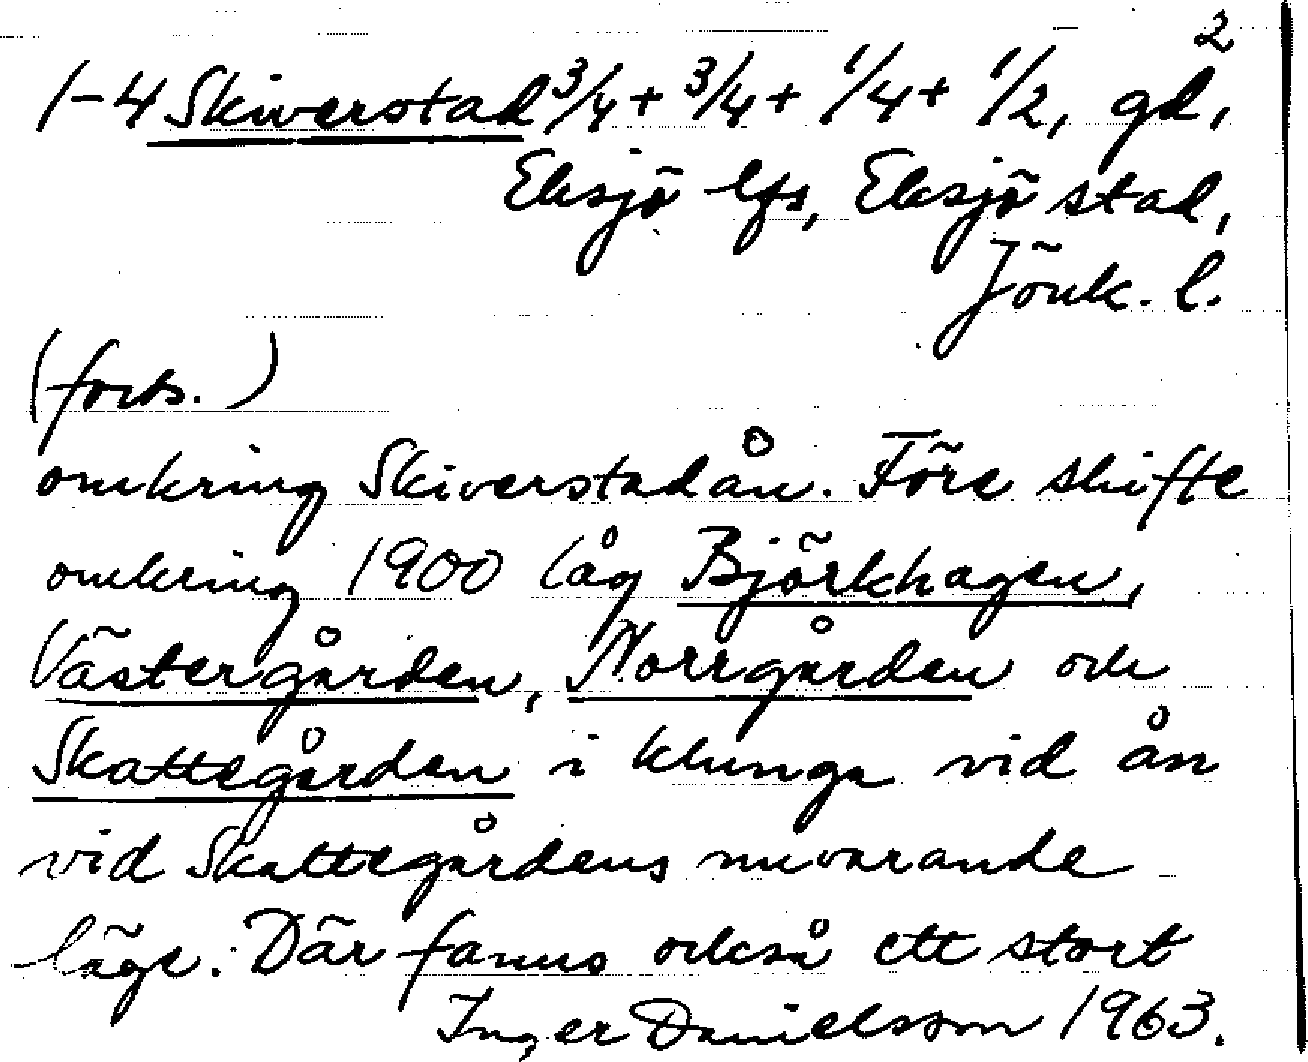 2
1-4 Skiverstad 3/4 + 3/4 + 1/4 + 1/2, gd,
Eksjö lfs, Eksjö stad,
Jönk. l.
(forts.)
omkring Skiverstadån. Före skifte
omkring 1900 låg Björkhagen,
Västergården, Norrgården och
Skattegården i klunga vid ån
vid Skattegårdens nuvarande
läge. Där fanns också ett stort
Inger Danielsson 1963.